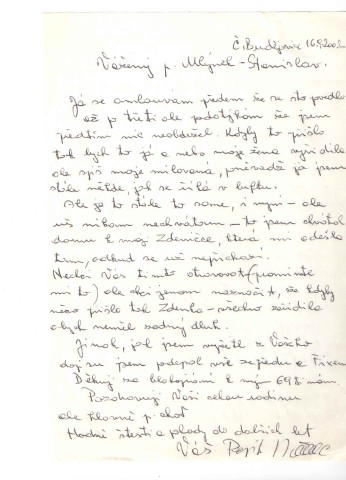 Č. Budějovice 16.9.2002
Vážený p. Mlýnek-Stanislav.
Já se omlouvám předem že se to povedlo
až p třetí ale podotýkám že jsem
předtím nic neobdržel. Kdyby to přišlo
tak bych to já a nebo moje žena vyřídila
ale spíš moje milovaná, převážně já jsem
stále někde, jak se říká v luftu.
Ale je to stále to same, i nyní - ale
už nikam nechvátám - to jsem chvátal
domu k mojí Zdeničce, která mi odešla
tam, odkud se už nepřichází.
Nechci Vás tímto otravovat (promiňte
mi to) ale chci jenom naznačit, že kdyby
něco přišlo tak Zdenka - všechno zařídila
abych neměl žádný dluh.
Jinak, jak jsem vyčetl z Vašeho
dopisu jsem podepsal vše zepředu a Fixem
Děkuji za blahopřání k mým 69 B. nám.
Pozdravuji Vaši celou rodinu
ale hlavně p. choť
Hodně štěstí a pohody do dalších let
Váš Pepík